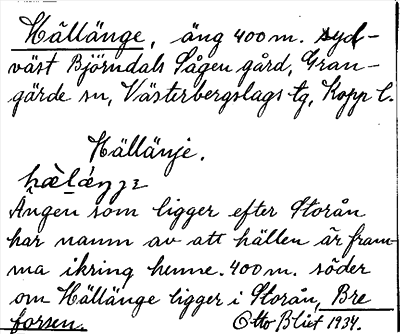 Hällänge, äng 400 m. syd-
väst Björndals Sågen gård, Gran-
gärde sn, Västerbergslags tg, Kopp l.
Hällänje.
Ängen som ligger efter Storån
har namn av att hällen är fram-
ma ikring henne. 400 m. söder
om Hällänge ligger i Storån, Bre
forsen.
Otto Blixt 1934.